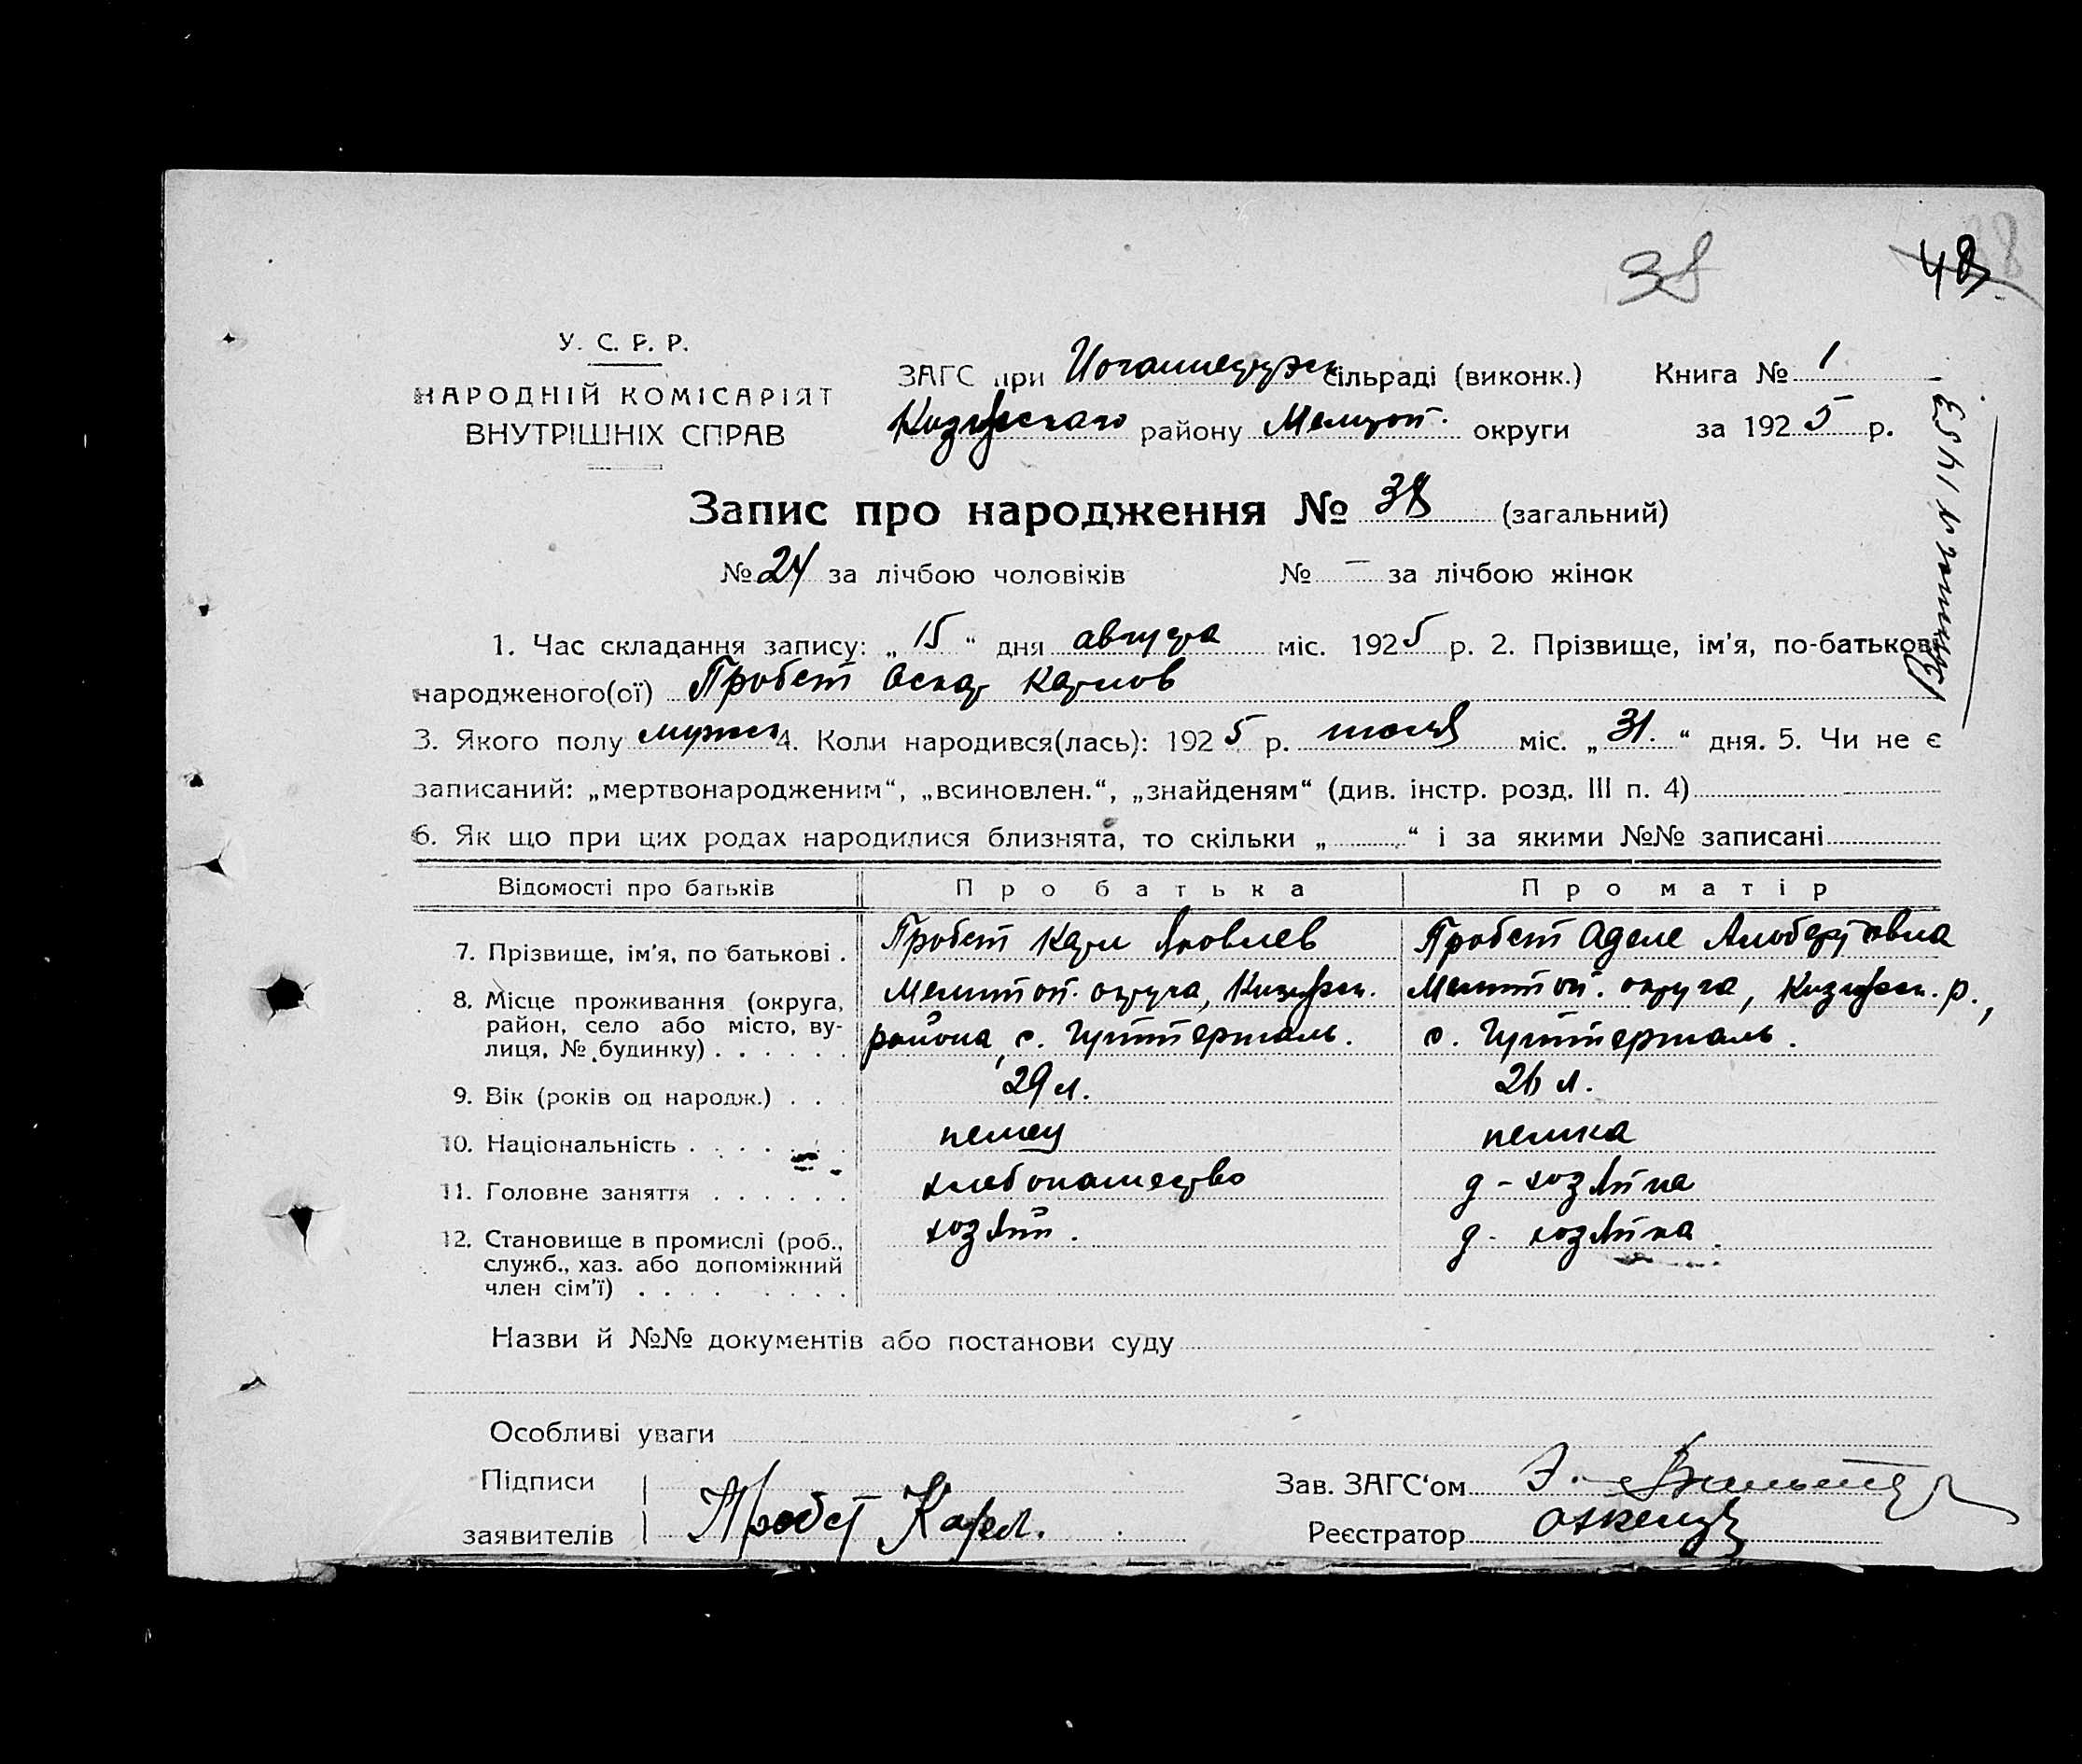 38
48
У. С. Р. Р.
НАРОДНІЙ КОМІСАРІЯТ
ВНУТРІШНІХ СПРАВ
ЗАГС при сільраді (виконк.) Книга № 1
району Мелитоп. округи за 1925 р.
Запис про народження № 38 (загальний)
№ 24 за лічбою чоловіків № — за лічбою жінок
1. Час складання запису: „15“ дня августа міс. 1925 р. 2. Прізвище, ім'я, по-батькові
народженого(ої) Пробст Оскар Карлов
3. Якого полу мужск 4. Коли народився(лась): 1925 р. июля міс. „31.“ дня. 5. Чи не є
записаний: „мертвонародженим“, „всиновлен.“, „знайденям“ (див. інстр. розд. III п. 4)
6. Як що при цих родах народилися близнята, то скільки „ “ і за якими №№ записані
Відомості про батьків Про батька Про матір
7. Прізвище, ім'я, по батькові . Пробст Карл Яковлев Пробст Аделе Альбертовна
8. Місце проживання (округа, район, село або місто, вулиця, № будинку) . . . . . . Мелитоп. округа, района, с. Гуттерталь. Мелитоп. округа, р., с. Гуттерталь.
9. Вік (років од народж.) . . . 29 л. 26 л.
10. Національність . . . . . . немец немка
11. Головне заняття . . . . . . хлебопашество д-хозяйка
12. Становище в промислі (роб., служб., хаз. або допоміжний член сім'ї) . . . . хозяин. д-хозяйка.
Назви й №№ документів або постанови суду
Особливі уваги
Підписи
заявителів Пробст Карл.
Зав. ЗАГС‘ом Э.
Реєстратор